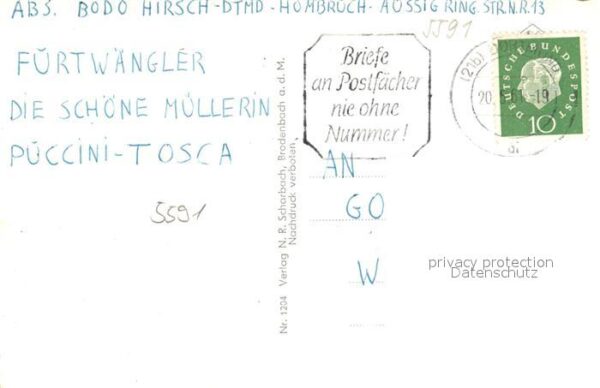 ABS. BODO HIRSCH-DTMD-HOMBRUCH-AUSSIG RING.STR.N.R.13
5591
FÜRTWÄNGLER
DIE SCHÖNE MÜLLERIN
PUCCINI-TOSCA
5591
Nr. 1204 Verlag N. R. Scharbach, Brodenbach a. d. M.
Nachdruck verboten
Briefe
an Postfächer
nie ohne
Nummer!
(21b)
20.
-19
DEUTSCHE BUNDESPOST
10
AN
GO
W
privacy protection
Datenschutz